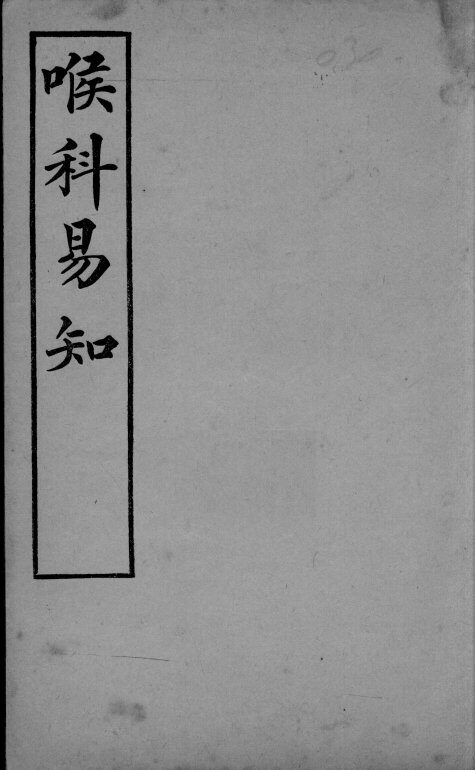 喉科易知